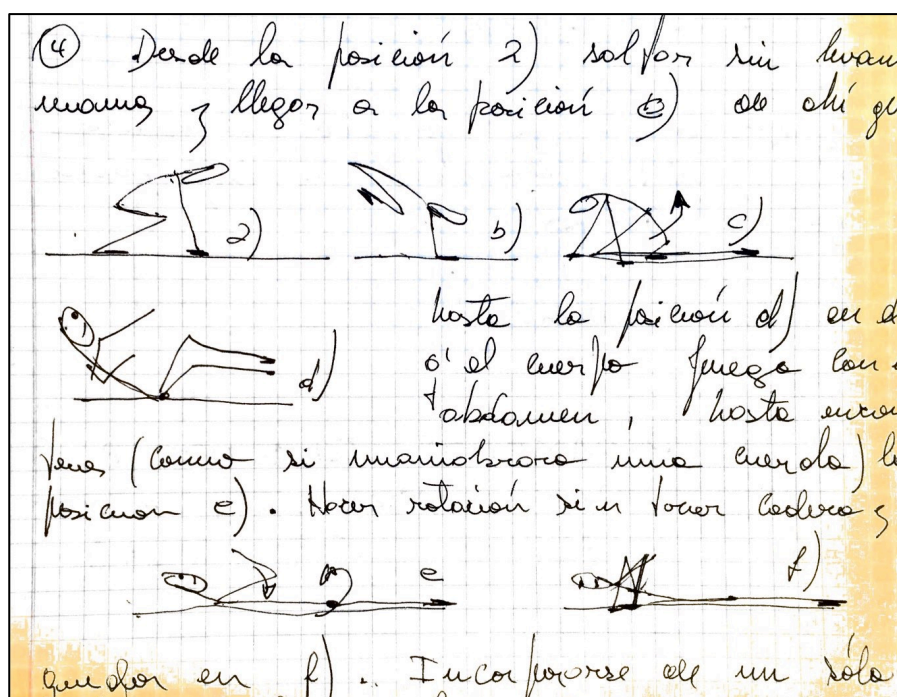 ④ Desde la posición 2) saltar sin levan
manos y llegar a la posición c) de ahí gi
2) b) c)
d)
hasta la posición d) en d
ó el cuerpo juega con
abdomen, hasta encon
(como si maniobrara una cuerda)
posicion e). Hacer rotación sin tocar cadera y
e f)
quedar en f). Incorporarse de un sólo